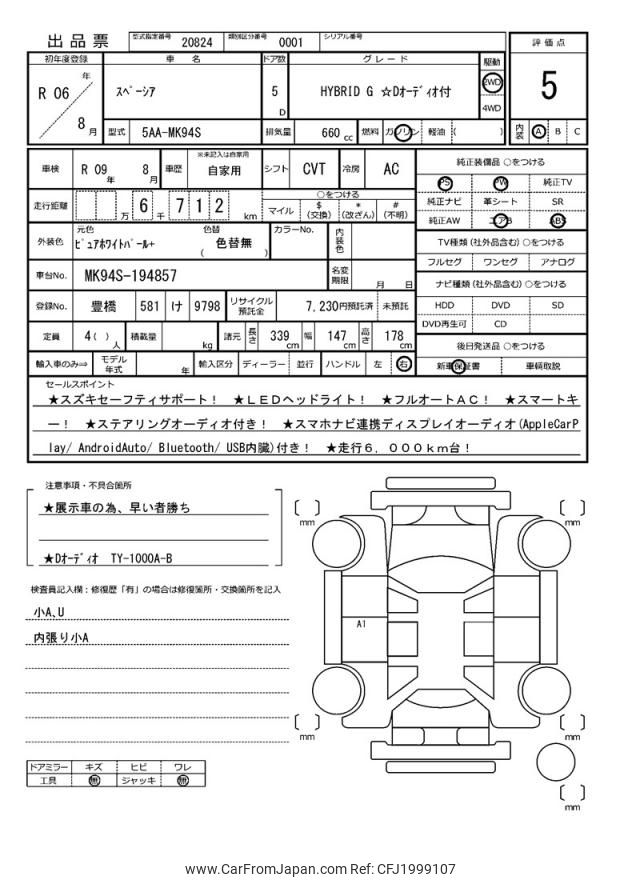 出品票 型式指定番号 20824 類別区分番号 0001 シリアル番号
評価点
5
内装 A B C
初年度登録 車名 ドア数 グレード 駆動
R 06 年 8 月 スペーシア 5 D HYBRID G ☆Dオーディオ付 2WD 4WD
型式 5AA-MK94S 排気量 660 cc 燃料 ガソリン 軽油 ( )
車検 R 09 年 8 月 車歴 ※未記入は自家用 自家用 シフト CVT 冷房 AC
走行距離 万 6 千 7 1 2 km ○をつける
マイル $(交換) *(改ざん) #(不明)
外装色 元色 ピュアホワイトパール+ 色替 ( 色替無 ) カラーNo. 内装色
車台No. MK94S-194857 名変期限 月 日
登録No. 豊橋 581 け 9798 リサイクル預託金 7,230円預託済 未預託
定員 4( ) 人 積載量 kg 諸元 長さ 339 cm 幅 147 cm 高さ 178 cm
輸入車のみ⇒ モデル年式 年 輸入区分 ディーラー 並行 ハンドル 左 右
純正装備品 ○をつける
PS PW 純正TV
純正ナビ 革シート SR
純正AW エアB ABS
TV種類(社外品含む)○をつける
フルセグ ワンセグ アナログ
ナビ種類(社外品含む)○をつける
HDD DVD SD
DVD再生可 CD
後日発送品 ○をつける
新車保証書 車輌取説
セールスポイント
★スズキセーフティサポート! ★LEDヘッドライト! ★フルオートAC! ★スマートキ
ー! ★ステアリングオーディオ付き! ★スマホナビ連携ディスプレイオーディオ(AppleCarP
lay/ AndroidAuto/ Bluetooth/ USB内臓)付き! ★走行6,000km台!
注意事項・不具合箇所
★展示車の為、早い者勝ち
★Dオーディオ TY-1000A-B
検査員記入欄:修復歴「有」の場合は修復箇所・交換箇所を記入
小A、U
内張り小A
ドアミラー キズ ヒビ ワレ
工具 無 ジャッキ 無
[ ] mm
[ ] mm
A1
[ ] mm
[ ] mm
[ ] mm
www.CarFromJapan.com Ref: CFJ1999107